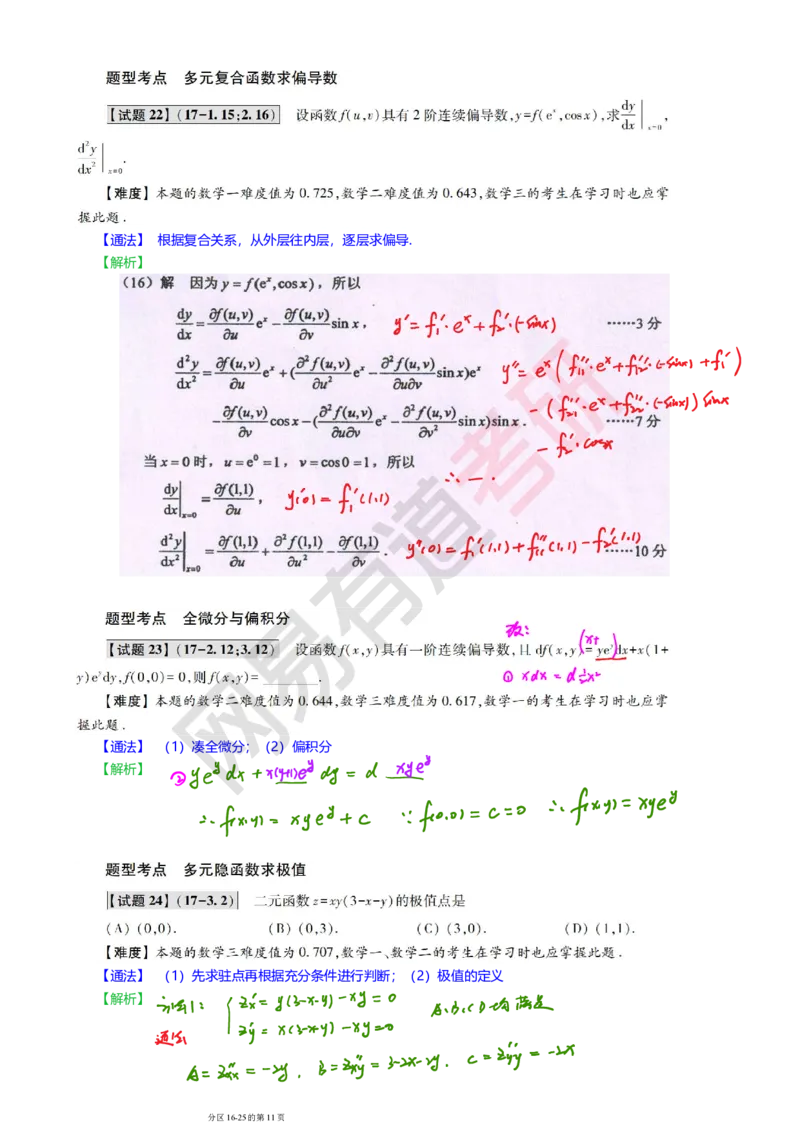 题型考点 多元复合函数求偏导数
【试题22】(17-1.15;2.16) 设函数f(u,v)具有2阶连续偏导数,y=f(eˣ,cosx),求dy/dx|ₓ₌₀,
d²y/dx²|ₓ₌₀.
【难度】本题的数学一难度值为0.725,数学二难度值为0.643,数学三的考生在学习时也应掌
握此题.
【通法】 根据复合关系，从外层往内层，逐层求偏导.
【解析】
(16) 解 因为y=f(eˣ,cosx)，所以
dy/dx=∂f(u,v)/∂u eˣ-∂f(u,v)/∂v sinx， y'=f₁'·eˣ+f₂'·(-sinx) ……3分
d²y/dx²=∂f(u,v)/∂u eˣ+(∂²f(u,v)/∂u² eˣ-∂²f(u,v)/∂u∂v sinx)eˣ y''=eˣ(f₁₁''·eˣ+f₁₂''·(-sinx)+f₁')
-∂f(u,v)/∂v cosx-(∂²f(u,v)/∂u∂v eˣ-∂²f(u,v)/∂v² sinx)sinx. -(f₂₁''·eˣ+f₂₂''·(-sinx))sinx ……7分
-f₂'·cosx
当x=0时，u=e⁰=1，v=cos0=1，所以
dy/dx|ₓ₌₀=∂f(1,1)/∂u， y'(0)=f₁'(1,1)
d²y/dx²|ₓ₌₀=∂f(1,1)/∂u+∂²f(1,1)/∂u²-∂f(1,1)/∂v. y''(0)=f₁'(1,1)+f₁₁''(1,1)-f₂'(1,1) ……10分
网易有道考研
题型考点 全微分与偏积分
(x+ )
【试题23】(17-2.12;3.12) 设函数f(x,y)具有一阶连续偏导数,且df(x,y)=yeʸdx+x(1+
y)eʸdy,f(0,0)=0,则f(x,y)=______.
① xdx=d½x²
【难度】本题的数学二难度值为0.644,数学三难度值为0.617,数学一的考生在学习时也应掌
握此题.
【通法】 （1）凑全微分；（2）偏积分
【解析】 ② yeʸdx+x(y+1)eʸdy=d xyeʸ
∴f(x,y)=xyeʸ+c ∵f(0,0)=c=0 ∴f(x,y)=xyeʸ
题型考点 多元隐函数求极值
【试题24】(17-3.2) 二元函数z=xy(3-x-y)的极值点是
(A) (0,0). (B) (0,3). (C) (3,0). (D) (1,1).
【难度】本题的数学三难度值为0.707,数学一、数学二的考生在学习时也应掌握此题.
【通法】 （1）先求驻点再根据充分条件进行判断；（2）极值的定义
【解析】 方法1: { zx'=y(3-x-y)-xy=0 A.B.C.D均满足
通法 zy'=x(3-x-y)-xy=0
A=zxx''=-2y, B=zxy''=3-2x-2y, C=zyy''=-2x
分区16-25的第11页